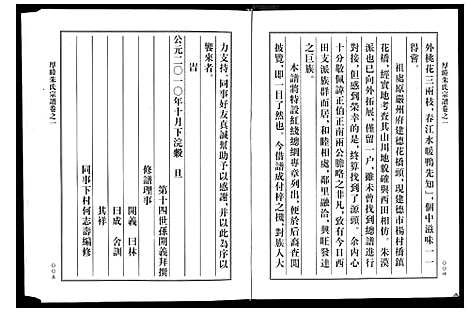 厚睦朱氏宗譜卷之一
外桃花三兩枝，春江水暖鴨先知」，個中滋味一一
祖處原嚴州府建德花橋頭，現建德市楊村橋鎮
花橋，經實地考查其山川地貌確與西田相仿。朱漠
派也已向外拓展，僅留一户，雖未曾找到總譜進行
比較，但感到榮幸的是，終算找到了源頭。余內心
十分敬佩諱正伯正南兩公膽略之非凡，致有今日西
田支派族群而居，和睦相處，鄰里融洽，興旺發達
之巨族。
本譜將特設紅綫總綱專章列出，便於後裔查閱
披覽，即一目了然也。今借譜成付梓之機，對族人大
〇〇四
力支持，同事好友真誠幫助予以感謝，并以此為序以
饗來者。
旹
公元二〇一〇年十月下浣穀 旦
第十四世孫開義拜撰
修譜理事
開義 曰林
曰成 舍訓
其祥
同事下村何志壽編修
厚睦朱氏宗譜卷之一
〇〇五